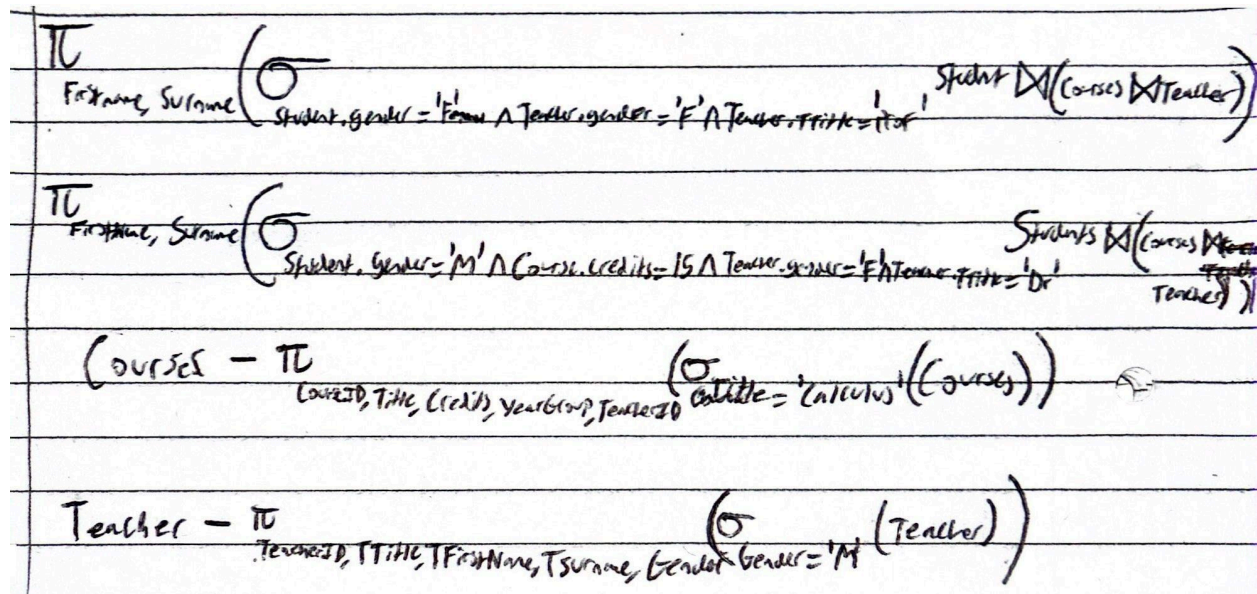 π Firstname, Surname (σ Student.gender = 'F' ∧ Teacher.gender = 'F' ∧ Teacher.TTitle = 'Prof' Student ⋈ (Courses ⋈ Teacher))
π FirstName, Surname (σ Student.gender = 'M' ∧ Course.credits = 15 ∧ Teacher.gender = 'F' ∧ Teacher.TTitle = 'Dr' Students ⋈ (Courses ⋈
Teacher))
Courses − π CourseID, Title, Credits, YearGroup, TeacherID (σ Title = 'Calculus' (Courses))
Teacher − π TeacherID, TTitle, TFirstName, TSurname, Gender (σ Gender = 'M' (Teacher))